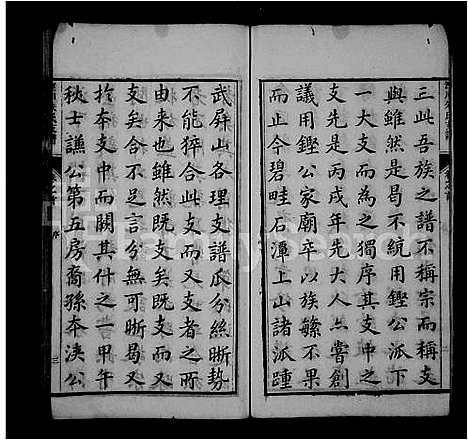 三此吾族之譜不稱宗而稱支
與雖然是曷不統用鏗公派下
一大支而為之獨序其支中之
支先是丙戌年先大人亦嘗創
議用鏗公家廟卒以族繇不果
而止今碧畦石潭上山諸派踵
武屏山各理支譜瓜分絲晰勢
不能猝合此支而又支者之所
由来也雖然既支矣既支而又
支矣合不足言分無可晰曷又
於本支中而闕其什之一甲午
秋士譙公第五房裔孫本浹公
序
三